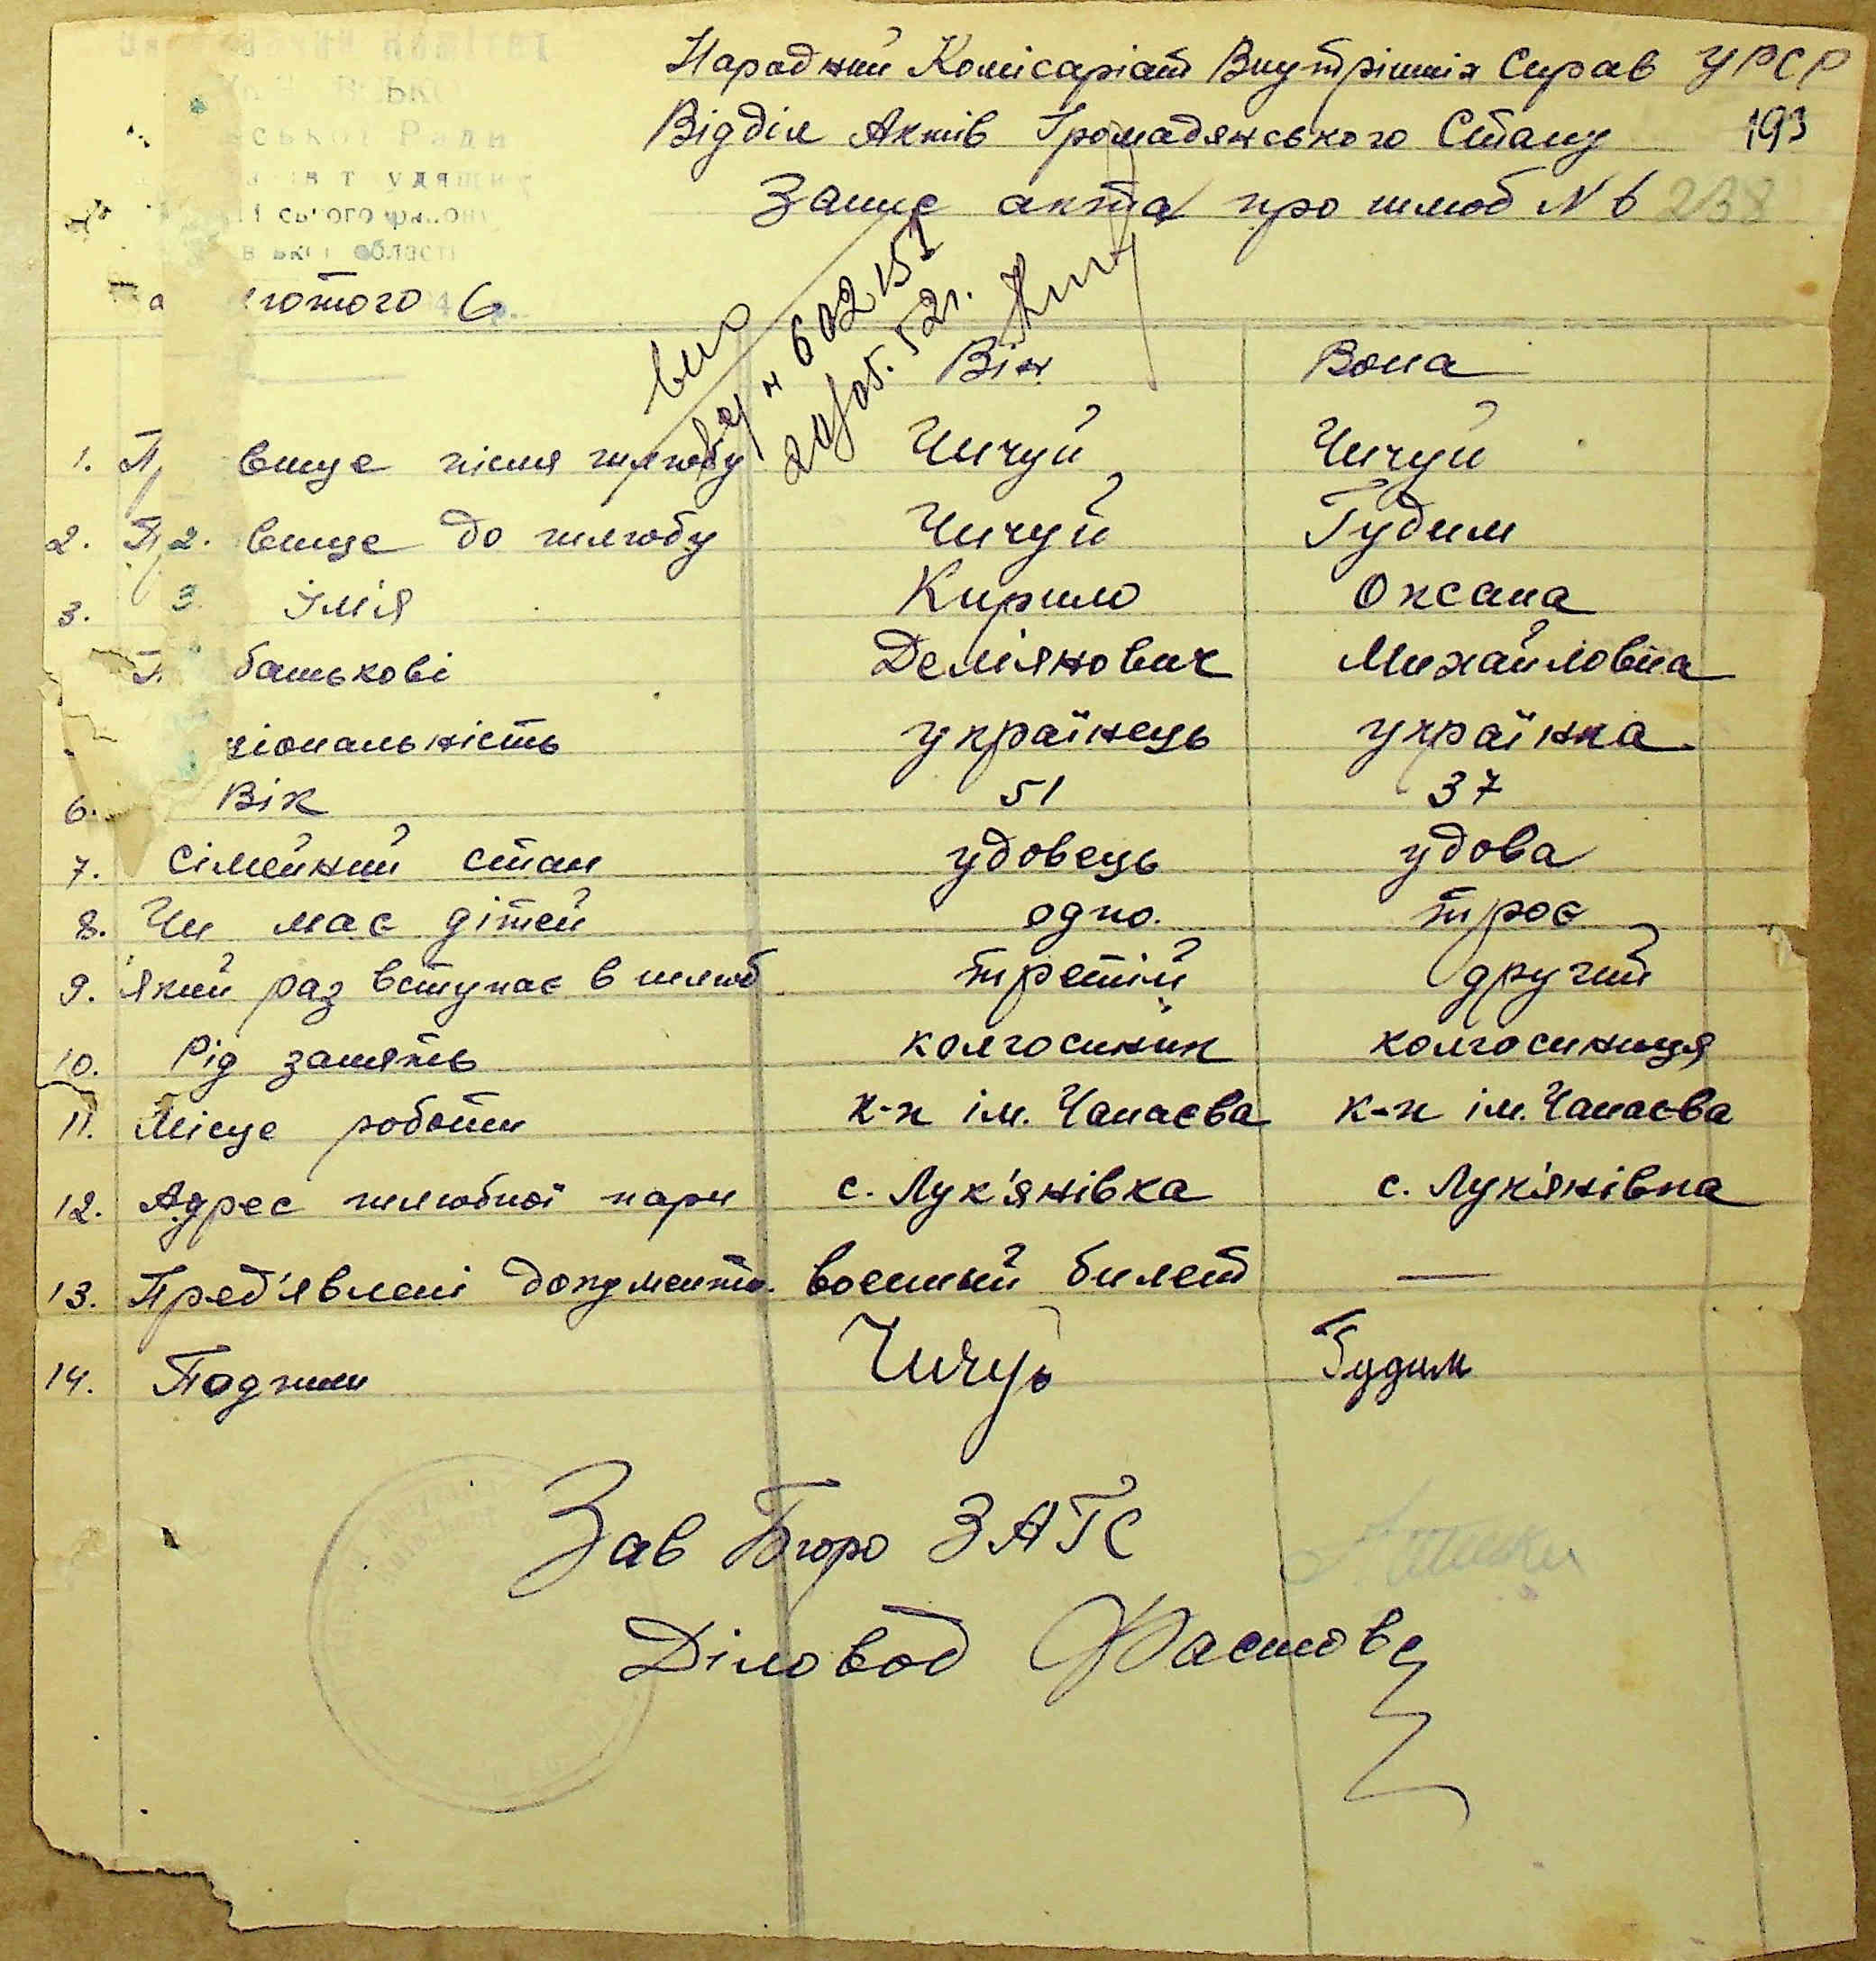 Народний Комісаріат Внутрішніх Справ УРСР
Відділ Актів Громадянського Стану 193
Запис акта про шлюб N 6 238
області
лютого 6
602151
52 г.
Він Вона
1. П вище після шлюбу Чичуй Чичуй
2. П 2. вище до шлюбу Чичуй Гудим
3. 3. Імія Кирило Оксана
батькові Деміянович Михайловна
ціональність українець українка
6. Вік 51 37
7. Сімейний стан удовець удова
8. Чи має дітей одно. троє
9. який раз вступає в шлюб третій другий
10. Рід занять колгоспник колгоспниця
11. Місце роботи к-п ім. Чапаєва к-п ім. Чапаєва
12. Адрес шлюбної пари с. Лук'янівка с. Лук'янівка
13. Пред'явлені документи воєнний билет —
14. Подписи Чичуй Гудим
Зав Бюро ЗАГС
Діловод